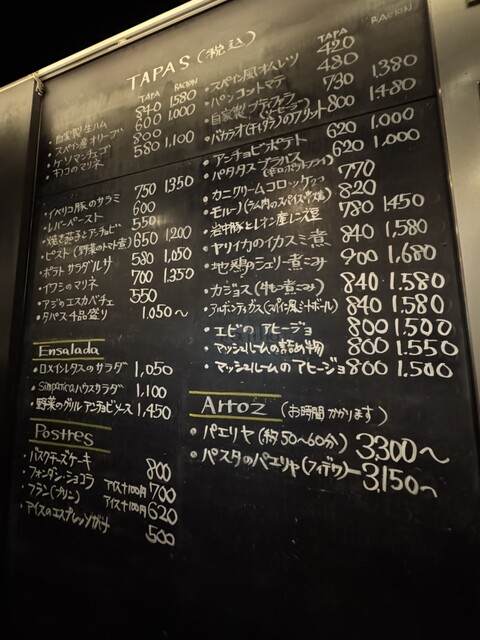 TAPAS (税込)
TAPA RACION
・自家製生ハム 840 1.580
・スペイン産オリーブ 600 1.000
・ケソマンチェゴ 800
・キノコのマリネ 580 1.100
・イベリコ豚のサラミ 750 1350
・レバーペースト 600
・焼き茄子とアンチョビ 550
・ピスト(野菜のトマト煮) 650 1,200
・ポテトサラダ 580 1,050
・イワシのマリネ 700 1.350
・アジのエスカベチェ 550
・タパス4品盛り 1.050〜
Ensalada
・ロメインレタスのサラダ 1,050
・Simpaticaハウスサラダ 1,100
・野菜のグリル アンチョビソース 1,450
Postres
・バスクチーズケーキ 800
・フォンダン・ショコラ アイス+100円 700
・フラン(プリン) アイス+100円 620
・アイスのエスプレッソがけ 500
TAPA RACION
・スペイン風オムレツ 420
・パンコントマテ 480
・自家製ブティファラ(ソーセージ) 730 1,380
・バカラオ(干しダラ)のフリット 800 1480
・アンチョビポテト 620 1,000
・パタタスブラバス(辛口ポテトフライ) 620 1,000
・カニクリームコロッケ 770
・モルーノ(ラム肉のスパイス串焼) 820
・岩中豚とレンズ豆の煮込 780 1,450
・ヤリイカのイカスミ煮 840 1,580
・地鶏のシェリー煮こみ 900 1,680
・カジョス(牛モツ煮こみ) 840 1.580
・アルボンディガス(スペイン風ミートボール) 840 1.580
・エビのアヒージョ 800 1,500
・マッシュルームの詰め物 800 1.550
・マッシュルームのアヒージョ 800 1,500
Arroz (お時間かかります)
・パエリヤ(約50〜60分) 3,300〜
・パスタのパエリヤ(フィデウァ) 3,150〜